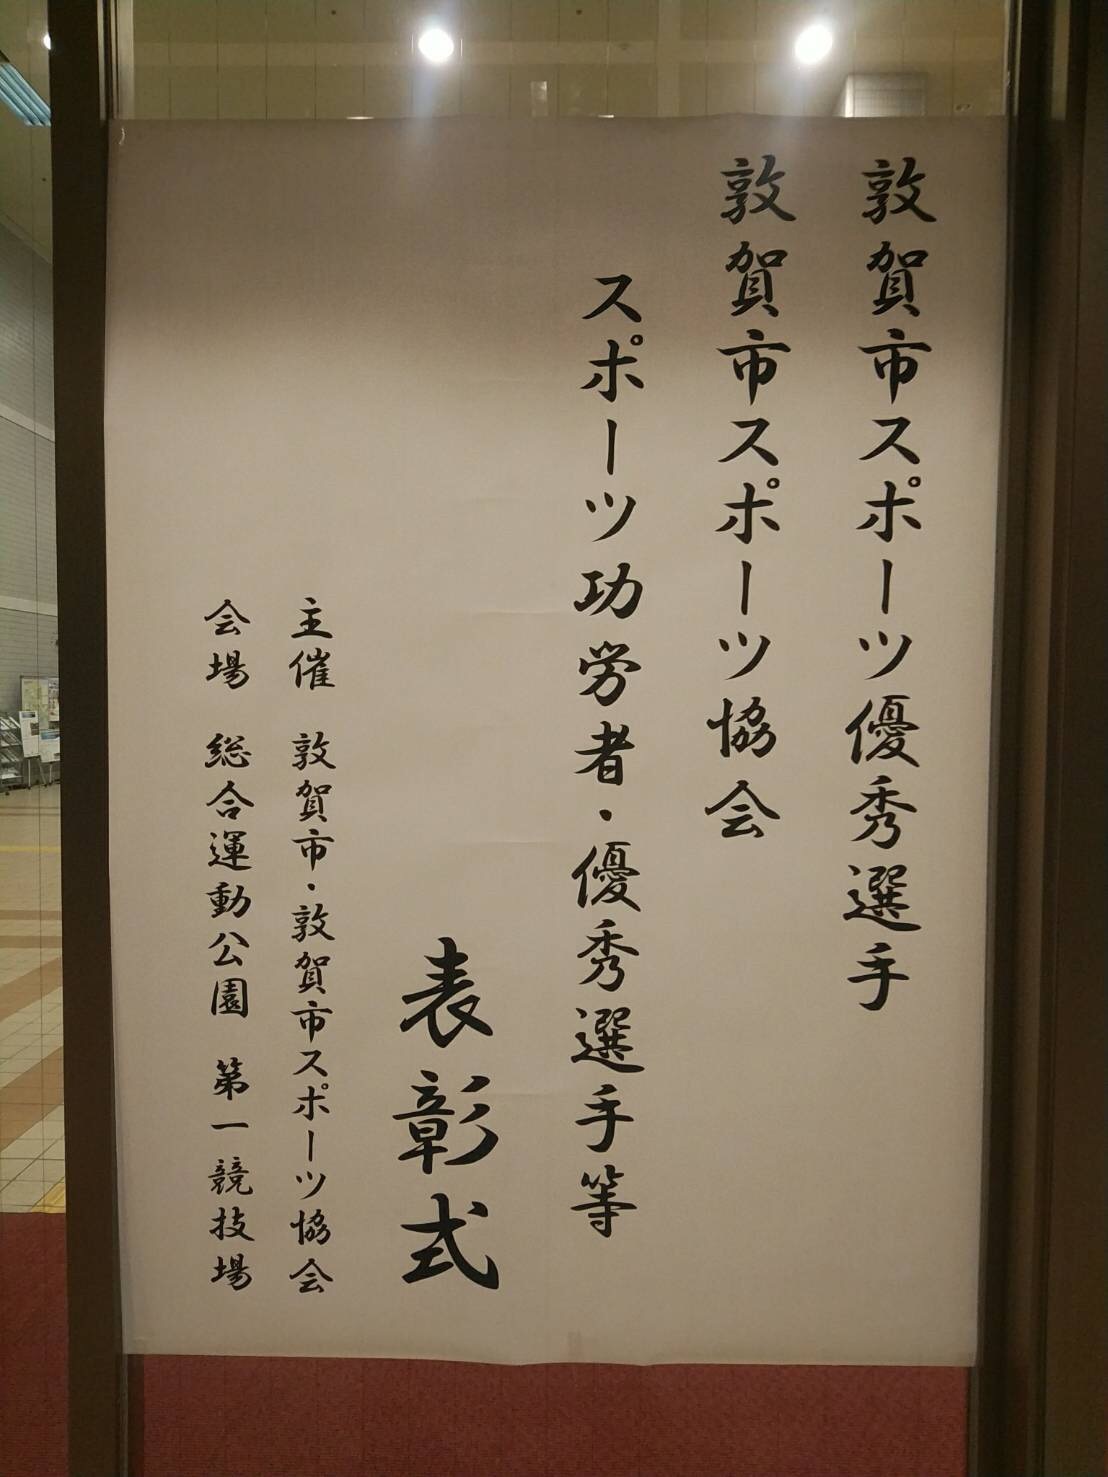 敦賀市スポーツ優秀選手
敦賀市スポーツ協会
スポーツ功労者・優秀選手等
表彰式
主催 敦賀市・敦賀市スポーツ協会
会場 総合運動公園 第一競技場